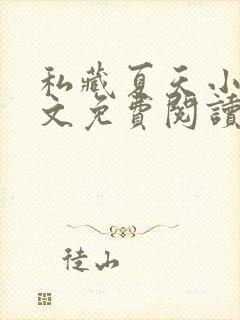 私藏夏天小
文免費閱讀
徒山